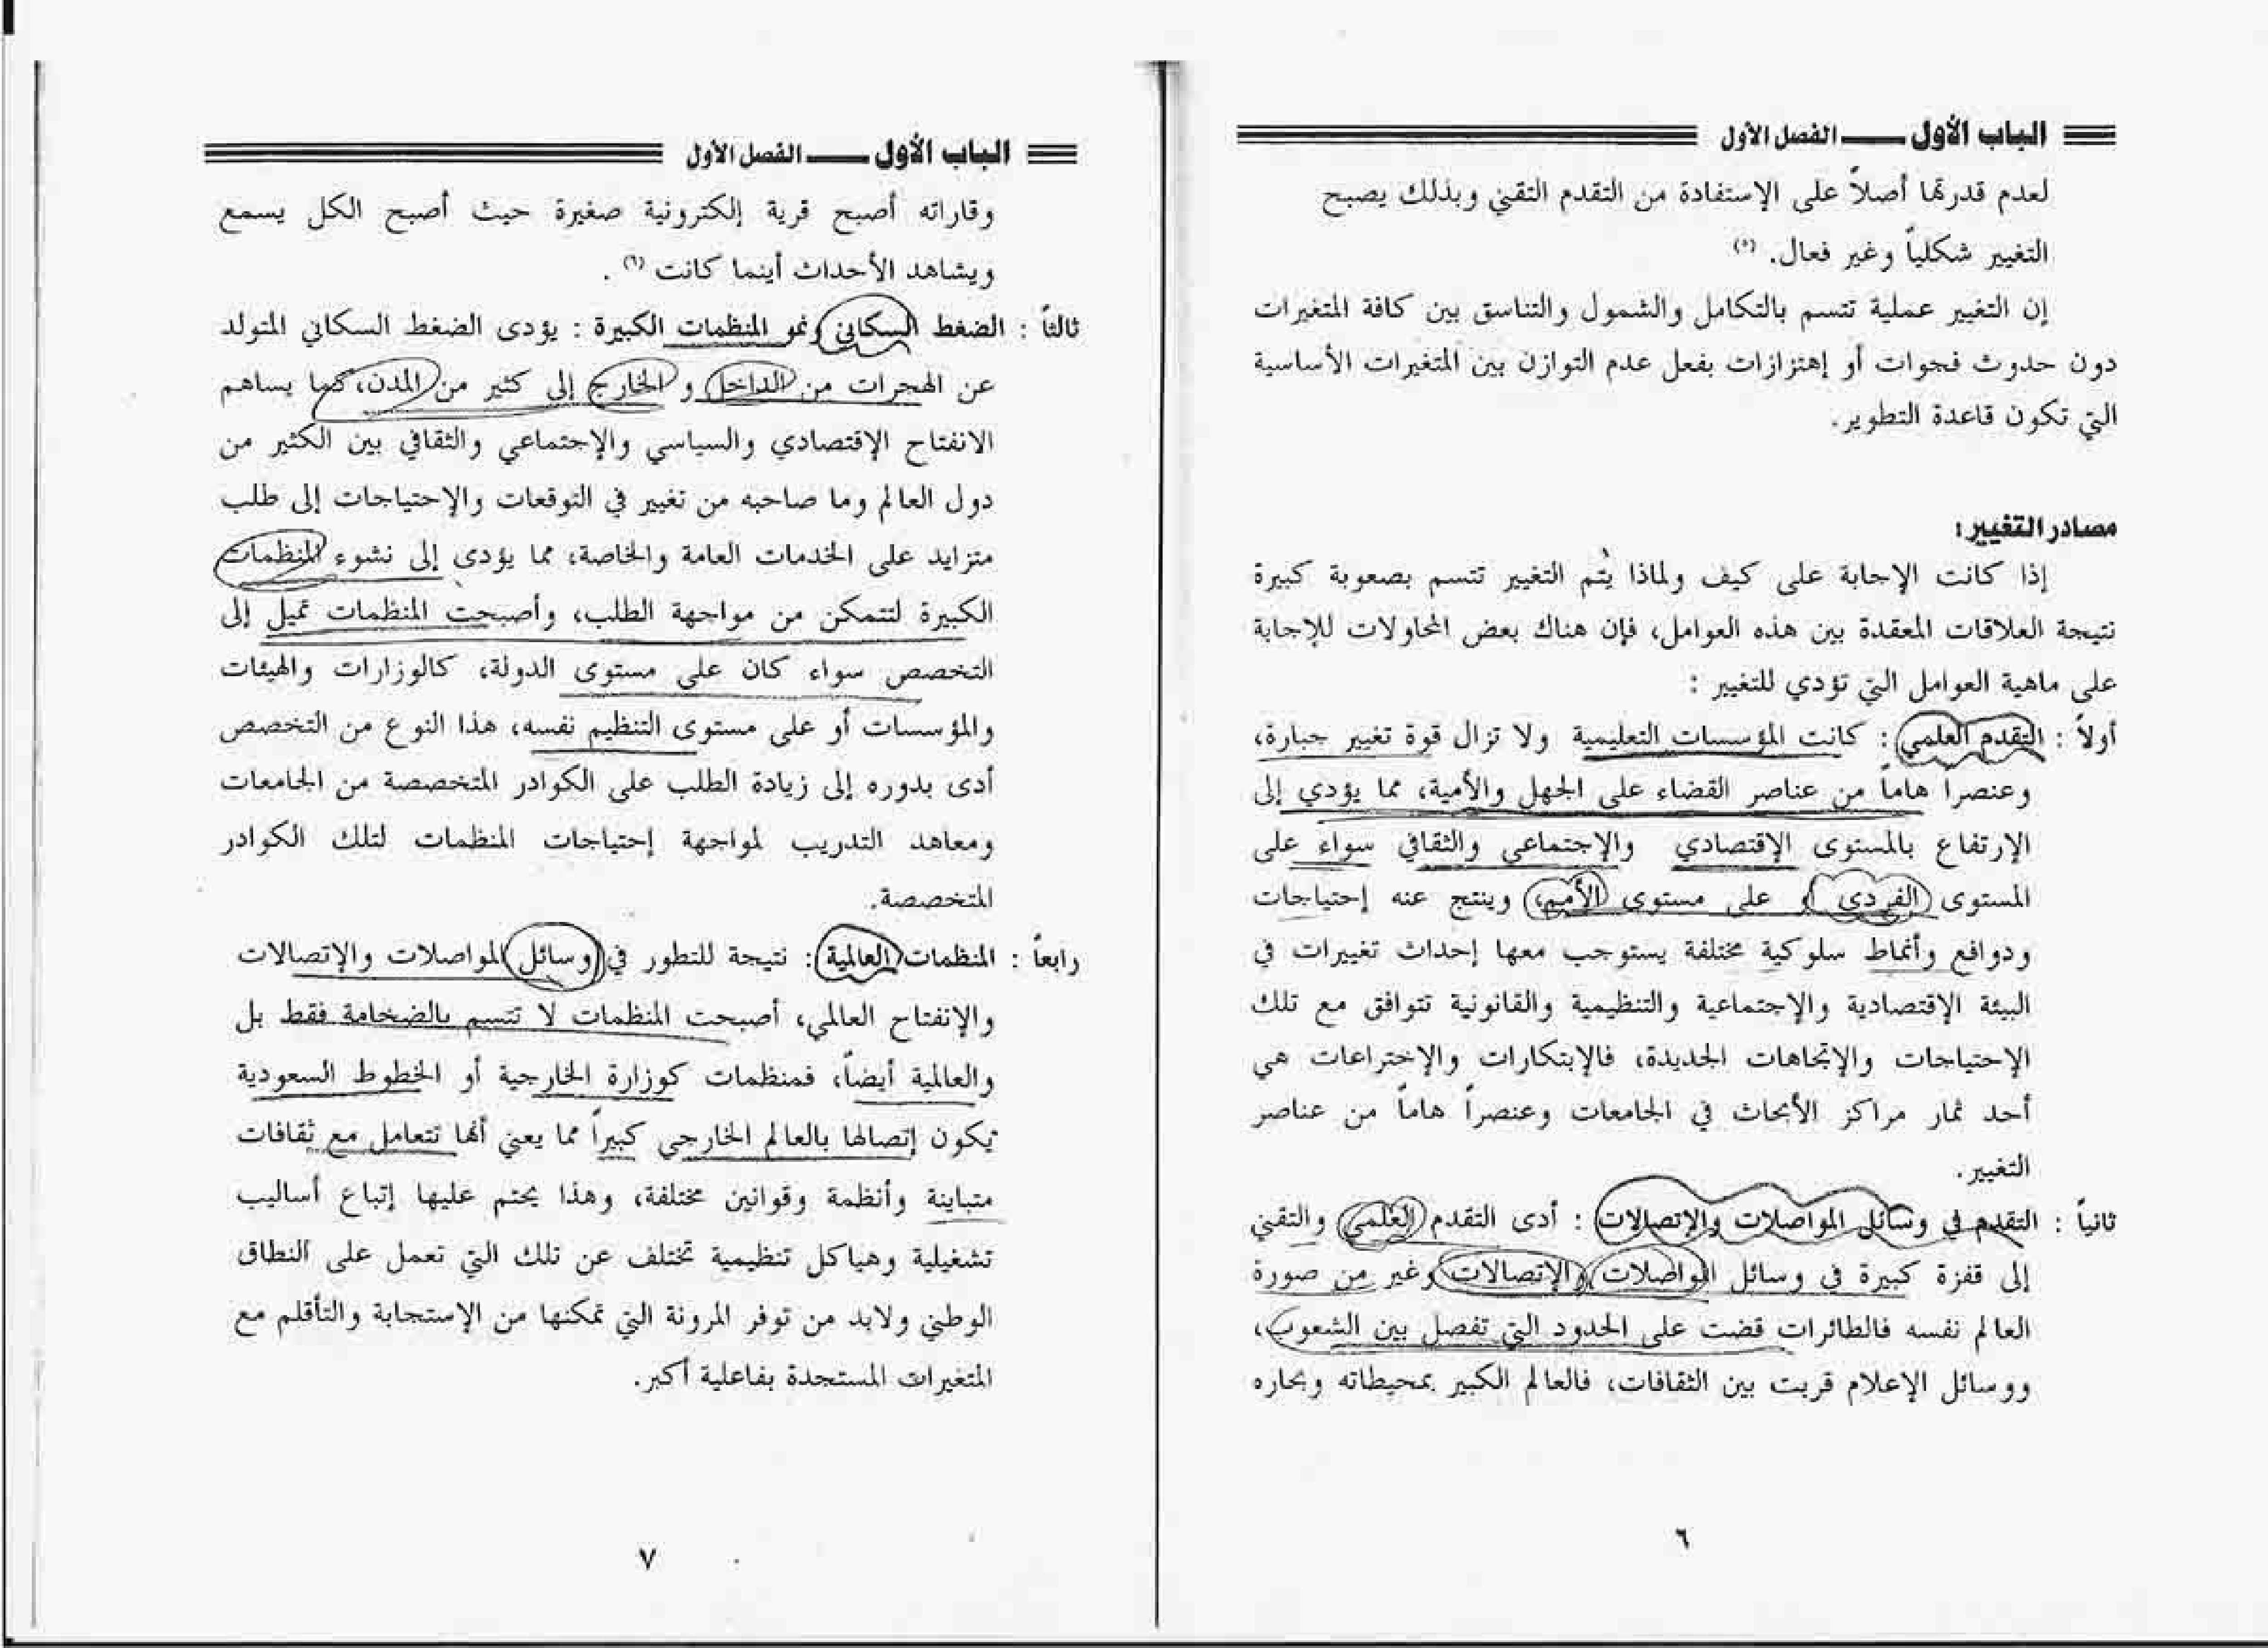 الباب الأول ـــــ الفصل الأول
لعدم قدرتها أصلاً على الإستفادة من التقدم التقني وبذلك يصبح
التغيير شكلياً وغير فعال. (٥)
إن التغيير عملية تتسم بالتكامل والشمول والتناسق بين كافة المتغيرات
دون حدوث فجوات أو إهتزازات بفعل عدم التوازن بين المتغيرات الأساسية
التي تكون قاعدة التطوير.
مصادر التغيير:
إذا كانت الإجابة على كيف ولماذا يتم التغيير تتسم بصعوبة كبيرة
نتيجة العلاقات المعقدة بين هذه العوامل، فإن هناك بعض المحاولات للإجابة
على ماهية العوامل التي تؤدي للتغيير :
أولاً : التقدم العلمي : كانت المؤسسات التعليمية ولا تزال قوة تغيير جبارة،
وعنصراً هاماً من عناصر القضاء على الجهل والأمية، مما يؤدي إلى
الإرتفاع بالمستوى الإقتصادي والإجتماعي والثقافي سواء على
المستوى الفردي أو على مستوى الأمم، وينتج عنه إحتياجات
ودوافع وأنماط سلوكية مختلفة يستوجب معها إحداث تغييرات في
البيئة الإقتصادية والإجتماعية والتنظيمية والقانونية تتوافق مع تلك
الإحتياجات والإتجاهات الجديدة، فالإبتكارات والإختراعات هي
أحد ثمار مراكز الأبحاث في الجامعات وعنصراً هاماً من عناصر
التغيير.
ثانياً : التقدم في وسائل المواصلات والإتصالات : أدى التقدم العلمي والتقني
إلى قفزة كبيرة في وسائل المواصلات والإتصالات وغير من صورة
العالم نفسه فالطائرات قضت على الحدود التي تفصل بين الشعوب،
ووسائل الإعلام قربت بين الثقافات، فالعالم الكبير بمحيطاته وبحاره
٦
الباب الأول ـــــ الفصل الأول
وقاراته أصبح قرية إلكترونية صغيرة حيث أصبح الكل يسمع
ويشاهد الأحداث أينما كانت (٦) .
ثالثاً : الضغط السكاني ونمو المنظمات الكبيرة : يؤدى الضغط السكاني المتولد
عن الهجرات من الداخل و الخارج إلى كثير من المدن، كما يساهم
الانفتاح الإقتصادي والسياسي والإجتماعي والثقافي بين الكثير من
دول العالم وما صاحبه من تغيير في التوقعات والإحتياجات إلى طلب
متزايد على الخدمات العامة والخاصة، مما يؤدى إلى نشوء المنظمات
الكبيرة لتتمكن من مواجهة الطلب، وأصبحت المنظمات تميل إلى
التخصص سواء كان على مستوى الدولة، كالوزارات والهيئات
والمؤسسات أو على مستوى التنظيم نفسه، هذا النوع من التخصص
أدى بدوره إلى زيادة الطلب على الكوادر المتخصصة من الجامعات
ومعاهد التدريب لمواجهة إحتياجات المنظمات لتلك الكوادر
المتخصصة.
رابعاً : المنظمات العالمية : نتيجة للتطور في وسائل المواصلات والإتصالات
والإنفتاح العالمي، أصبحت المنظمات لا تتسم بالضخامة فقط بل
والعالمية أيضاً، فمنظمات كوزارة الخارجية أو الخطوط السعودية
يكون إتصالها بالعالم الخارجي كبيراً مما يعني أنها تتعامل مع ثقافات
متباينة وأنظمة وقوانين مختلفة، وهذا يحتم عليها إتباع أساليب
تشغيلية وهياكل تنظيمية تختلف عن تلك التي تعمل على النطاق
الوطني ولابد من توفر المرونة التي تمكنها من الإستجابة والتأقلم مع
المتغيرات المستجدة بفاعلية أكبر.
٧